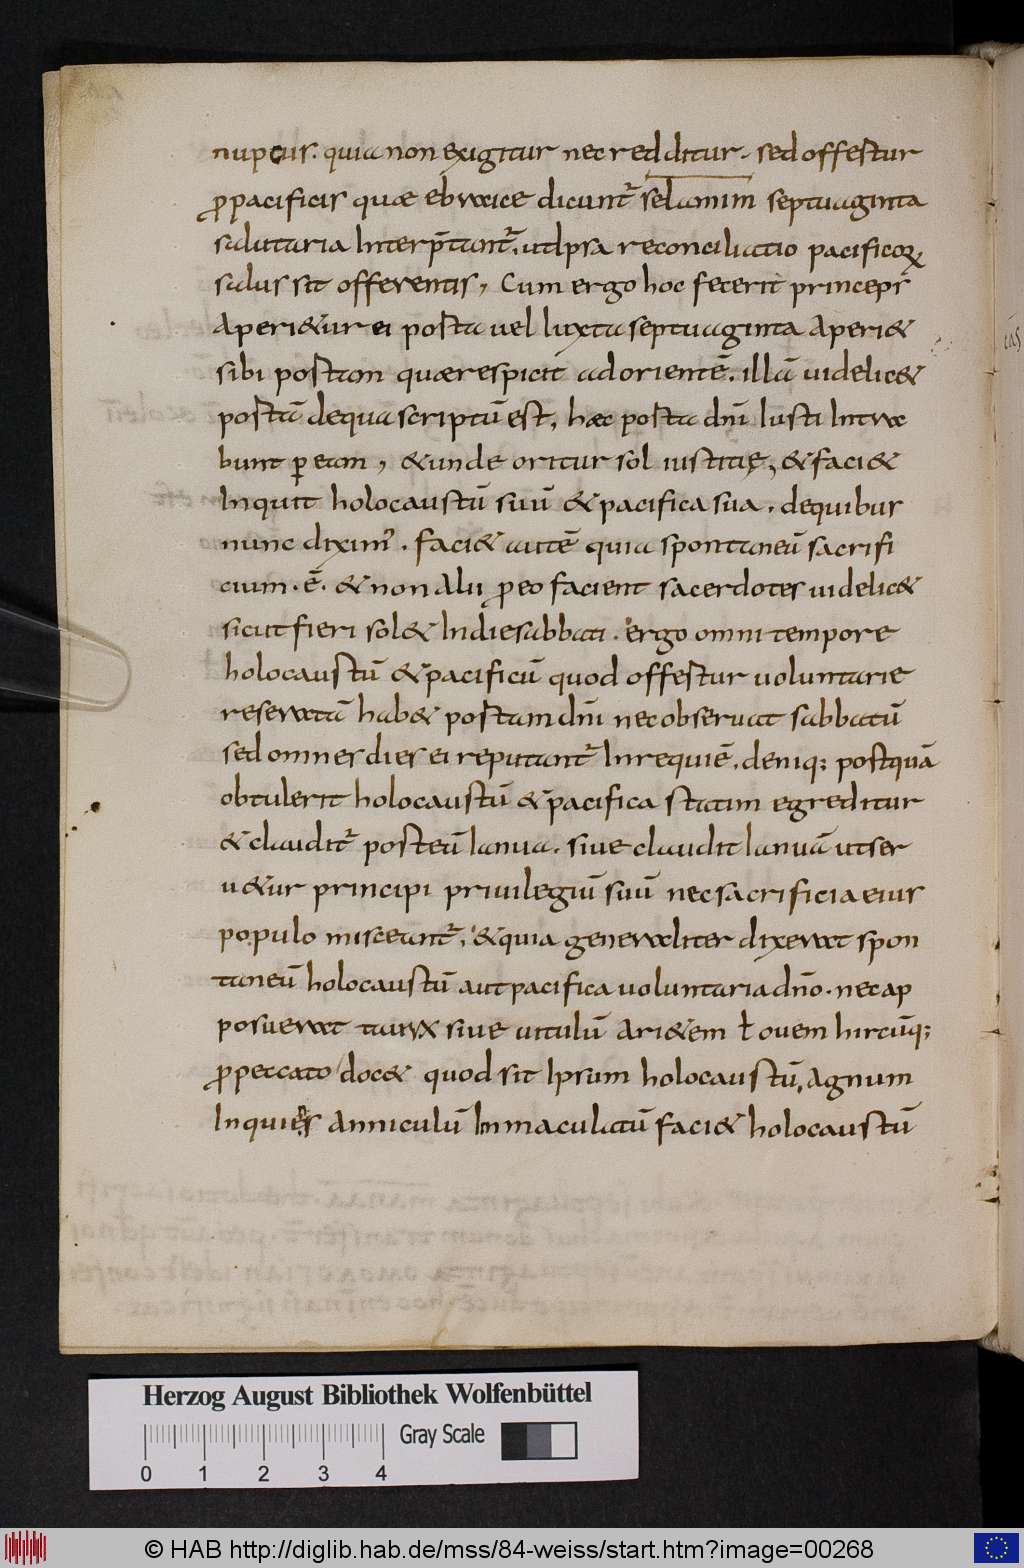 nuptiis. quia non exigitur nec redditur. sed offertur
ꝓpacificis quæ ebraice dicunt᷑ selamim septuaginta
salutaria Interp̄tant᷑. ut Ipsa reconciliatio pacificoꝝ
salus sit offerentis, Cum ergo hoc fecerit princeps
Aperi&ur ei porta uel Iuxta septuaginta Aperi&
sibi portam quæ respicit ad orientē. illā uidelic&
portā de qua scriptū est, hæc porta dn̄i Iusti Intra
bunt ꝑ eam, & unde oritur sol iustitię, & faci&
Inquit holocaustū suū & pacifica sua. de quibus
nunc dixim᷒. faci& autē quia spontaneū sacrifi
cium. ē. & non Alii ꝓ eo facient sacerdotes uidelic&
sicut fieri sol& In die sabbati. ergo omni tempore
holocaustū & pacificū quod offertur uoluntarie
reseratā hab& portam dn̄i nec obseruat sabbatū
sed omnes dies ei reputant᷑ In requiē. deniq; postquā
obtulerit holocaustū & pacifica statim egreditur
& claudit᷑ post eū Ianua. siue claudit Ianuā ut ser
u&ur principi priuilegiū suū nec sacrificia eius
populo misceant᷑, & quia generaliter dixerat spon
taneū holocaustū aut pacifica uoluntaria dn̄o. nec ap
posuerat taurū siue uitulū Ari&em ł ouem hircūq;
ꝓ peccato doc& quod sit Ipsum holocaustū, Agnum
Inquiens Anniculū Inmaculatū faci& holocaustū
Herzog August Bibliothek Wolfenbüttel
Gray Scale
0 1 2 3 4
© HAB http://diglib.hab.de/mss/84-weiss/start.htm?image=00268